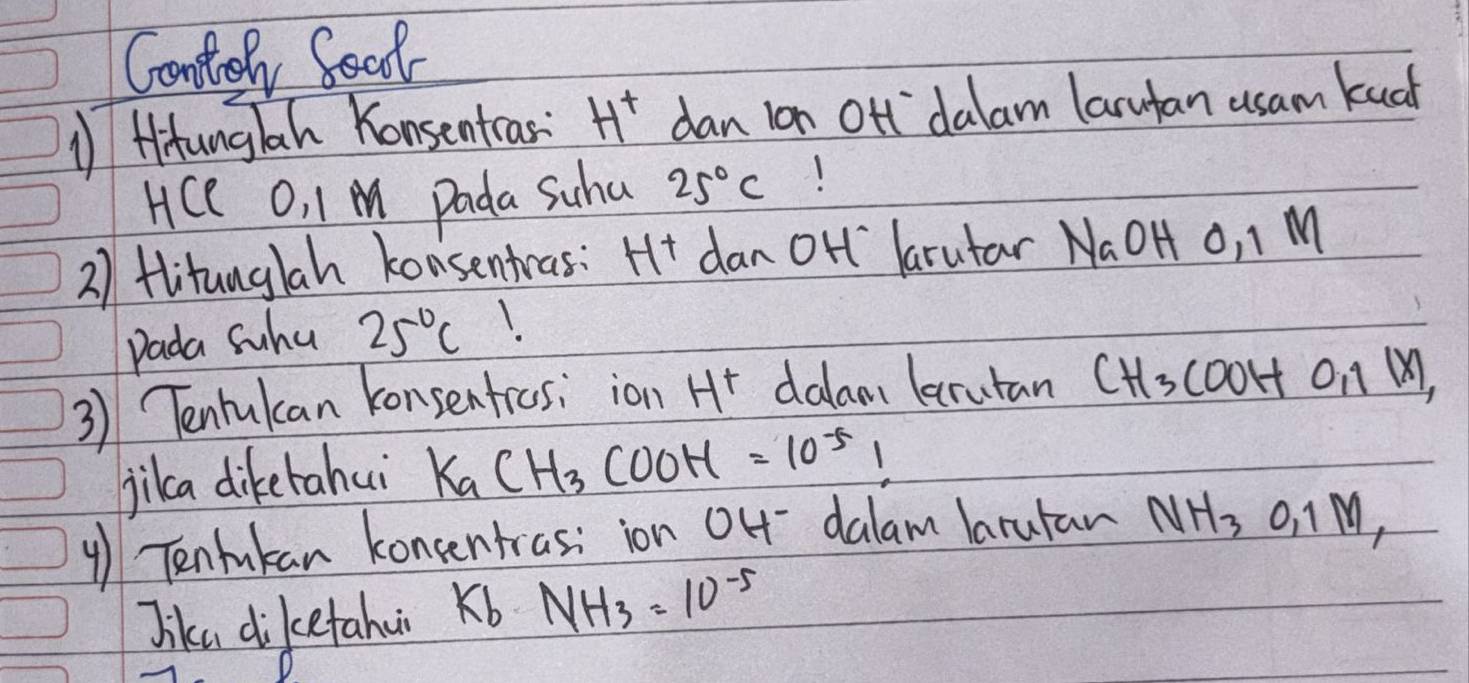 Contoh Soal
1) Hitunglah Konsentrasi H⁺ dan ion OH⁻ dalam larutan asam kuat
HCl 0,1 M pada suhu 25°C !
2) Hitunglah konsentrasi H⁺ dan OH⁻ larutar NaOH 0,1 M
pada suhu 25°C !
3) Tentukan konsentrasi ion H⁺ dalam larutan CH₃COOH 0,1 M,
jika diketahui Ka CH₃COOH = 10⁻⁵ !
4) Tentukan konsentrasi ion OH⁻ dalam larutan NH₃ 0,1 M,
Jika diketahui Kb NH₃ = 10⁻⁵